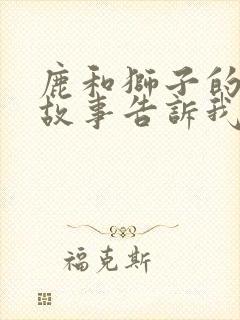 鹿和獅子的
故事告訴我
福克斯